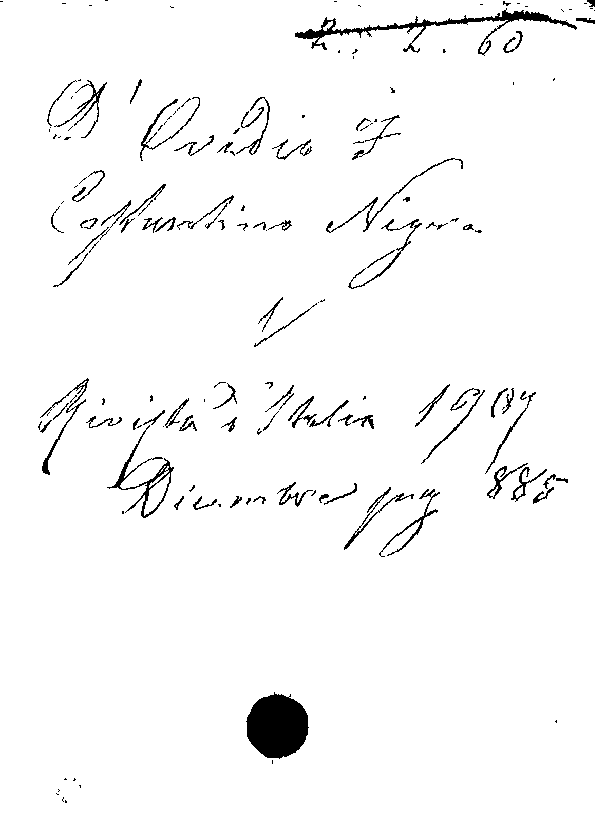 2. 60
D'Ovidio F
Costantino Nigra
1/
Rivista d'Italia 1907
Dicembre pag 885